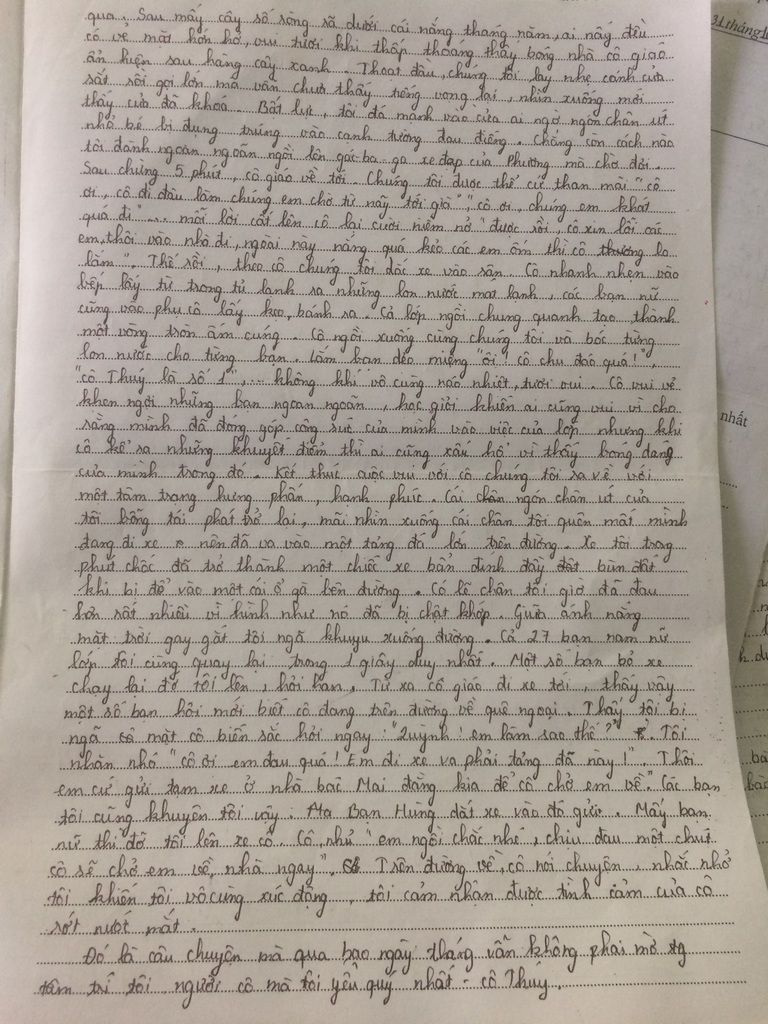 qua. Sau mấy cây số ròng rã dưới cái nắng tháng năm, ai nấy đều
có vẻ mặt hớn hở, vui tươi khi thấp thoáng thấy bóng nhà cô giáo
ẩn hiện sau hàng cây xanh. Thoạt đầu, chúng tôi lay nhẹ cánh cửa
sắt rồi gọi lớn mà vẫn chưa thấy tiếng vọng lại, nhìn xuống mới
thấy cửa đã khoá. Bất lực, tôi đá mạnh vào cửa ai ngờ ngón chân út
nhỏ bé bị đụng trúng vào cạnh tường đau điếng. Chẳng còn cách nào
tôi đành ngoan ngoãn ngồi lên gác-ba-ga xe đạp của Phương mà chờ đợi.
Sau chừng 5 phút, cô giáo về tới. Chúng tôi được thể cứ than mãi "cô
ơi, cô đi đâu làm chúng em chờ từ nãy tới giờ", "cô ơi, chúng em khát
quá đi"... mỗi lời cất lên cô lại cười niềm nở "được rồi, cô xin lỗi các
em, thôi vào nhà đi, ngoài này nắng quá kẻo các em ốm thì cô thương lo
lắm". Thế rồi, theo cô chúng tôi dắc xe vào sân. Cô nhanh nhẹn vào
bếp lấy từ trong tủ lạnh ra những lon nước mát lạnh, các bạn nữ
cũng vào phụ cô lấy kẹo, bánh ra. Cả lớp ngồi chung quanh tạo thành
một vòng tròn ấm cúng. Cô ngồi xuống cùng chúng tôi và bóc từng
lon nước cho từng bạn. Lắm bạn dẻo miệng "ôi! cô chu đáo quá!",
"cô Thuý là số 1",... không khí vô cùng náo nhiệt, tươi vui. Cô vui vẻ
khen ngợi những bạn ngoan ngoãn, học giỏi khiến ai cũng vui vì cho
rằng mình đã đóng góp công sức của mình vào việc của lớp nhưng khi
cô kể ra những khuyết điểm thì ai cũng xấu hổ vì thấy bóng dáng
của mình trong đó. Kết thúc cuộc vui với cô chúng tôi ra về với
một tâm trạng hưng phấn, hạnh phúc. Cái ngón chân út của
tôi bỗng tái phát trở lại, mãi nhìn xuống cái chân tôi quên mất mình
đang đi xe nên đã va vào một tảng đá lớn trên đường. Xe tôi trong
phút chốc đã trở thành một chiếc xe bẩn dính đầy đất bùn đất
khi bị đổ vào một cái ổ gà bên đường. Có lẽ chân tôi giờ đã đau
hơn rất nhiều vì hình như nó đã bị chật khớp. Giữa ánh nắng
mặt trời gay gắt tôi ngã khuỵu xuống đường. Cả 27 bạn nam nữ
lớp tôi cùng quay lại trong 1 giây duy nhất. Một số bạn bỏ xe
chạy lại đỡ tôi lên, hỏi han. Từ xa cô giáo đi xe tới, thấy vậy
một số bạn hỏi mới biết cô đang trên đường về quê ngoại. Thấy tôi bị
ngã mặt cô biến sắc hỏi ngay: "Quỳnh! em làm sao thế?". Tôi
nhăn nhó "cô ơi em đau quá! Em đi xe va phải tảng đá này!". "Thôi
em cứ gửi tạm xe ở nhà bác Mai đằng kia để cô chở em về". Các bạn
tôi cũng khuyên tôi vậy. Bạn Hùng dắt xe vào đó gửi. Mấy bạn
nữ thì đỡ tôi lên xe cô. Cô nhủ "em ngồi chắc nhé, chịu đau một chút
cô sẽ chở em về nhà ngay". Trên đường về, cô nói chuyện, nhắc nhở
tôi khiến tôi vô cùng xúc động, tôi cảm nhận được tình cảm của cô
rớt nước mắt.
Đó là câu chuyện mà qua bao ngày tháng vẫn không phai mờ
tâm trí tôi, người cô mà tôi yêu quý nhất - cô Thuý.
31 tháng
nhất